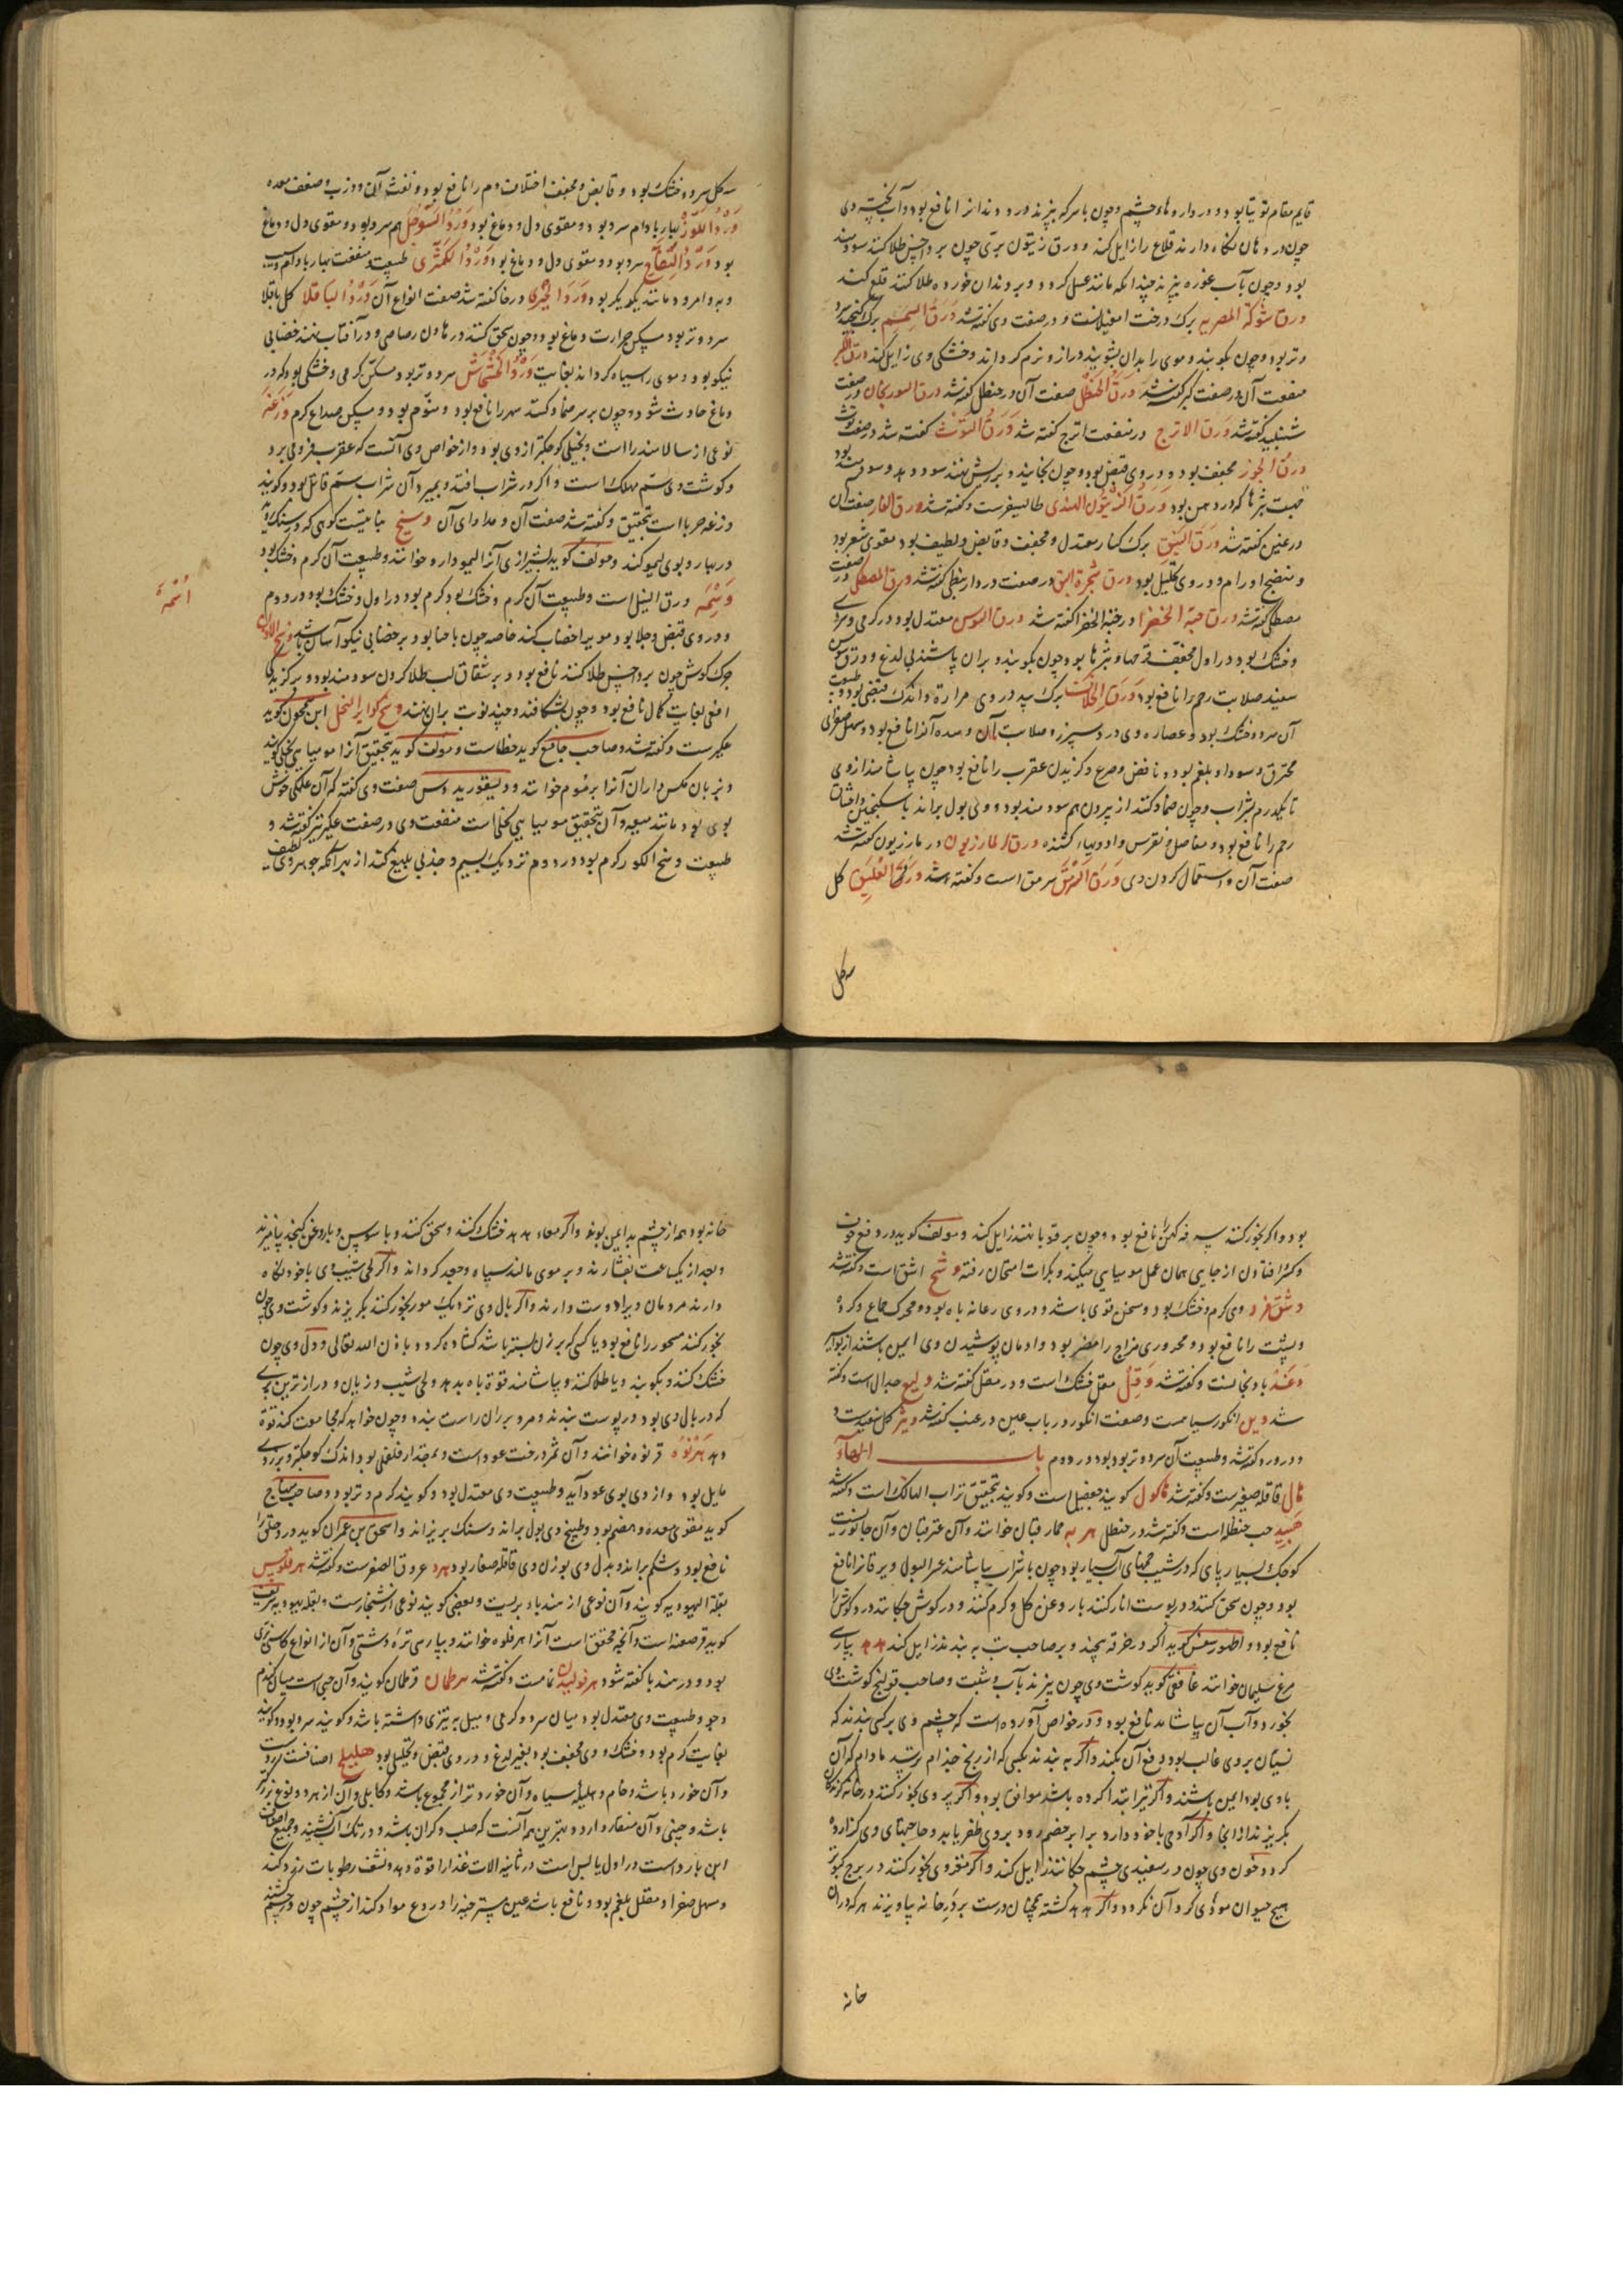 قایم مقام توتیا بود و در داروهاء چشم و چون با سرکه بپزند درد دندانرا نافع بود و آب پخته وی
چون در دهان نگاه دارند قلاع را زایل کند و ورق زیتون بری چون بر داحس طلا کنند سودمند
بود و چون بآب غوره بپزند چندانکه مانند عسل گردد و بر دندان خورده طلا کنند قلع کند
ورق شوکة المصریه برک درخت امغیلانست و در صفت وی گفته شد ورق السمسم برک کنجد سرد
و تر بود و چون بکوبند و موی را بدان بشویند دراز و نرم گرداند و خشکی وی زایل کند ورق الکبر
منفعت آن در صفت کبر گفته شد ورق الحنظل صفت آن در حنظل گفته شد ورق السوریجان در صفت
شنبلید گفته شد ورق الاترج در منفعت اترج گفته شد ورق التوت گفته شد در صفت توت
ورق الجوز مجفف بود و در وی قبض بود و چون بخایند و بر ریش نهند سود دهد و سودمند بود
جهت بثرها که در دهن بود ورق الزیتون الهندی طالیسفر است و گفته شد ورق الغار صفت آن
در غین گفته شد ورق النبق برک کنار معتدل و مجفف و قابض و لطیف بود مقوی شعر بود
و منضج اورام و در وی تحلیل بود ورق شجرة البق در صفت دردار نبطی گفته شد ورق المصطکی در صفت
مصطکی گفته شد ورق حبة الخضرا در حبة الخضرا گفته شد ورق السوس معتدل بود در گرمی و سردی
و خشک بود در اول مجفف قرحها و بثرها بود چون بکوبند و بران پاشند بی لدغ و ورق سوس
سفید صلابت رحم را نافع بود ورق الخلاف برک بید در وی مرارة و اندک قبضی بود و طبیعت
آن سرد و خشک بود و عصاره وی درد سپرز و صلابت آن و سده آنرا نافع بود و مسهل صفرای
محترق و سودا و بلغم بود و نافض و صرع و گزیدن عقرب را نافع بود چون بیاشامند از وی
تا یکدرم بشراب و چون ضماد کنند از بیرون هم سودمند بود و وی بول براند با سکنجبین و اختناق
رحم را نافع بود و مفاصل و نقرس و ادویهاء کشنده ورق المازریون در مازریون گفته شد
صفت آن و استعمال کردن وی ورق السرمق سرمق است و گفته شد ورد العلیق گل
سه گل
سه گل سرد و خشک بود و قابض و مجفف اختلاف دم را نافع بود و نفث آن و درب و ضعف معده
ورد اللوز بهار بادام سرد بود و مقوی دل و دماغ بود ورد السفرجل هم سرد بود و مقوی دل و دماغ
بود ورد التفاح سرد بود و مقوی دل و دماغ بود ورد الکمثری طبیعت و منفعت بهار بادام و سیب
و به و امرود مانند یکدیگر بود ورد الخیری در خا گفته شد صفت انواع آن ورد الباقلا گل باقلا
سرد و تر بود مسکن حرارت دماغ بود و چون سحق کنند در هاون رصاصی و در آفتاب نهند خضابی
نیکو بود و موی را سیاه گرداند بغایت ورد الخشخاش سرد و تر بود مسکن گرمی و خشکی بود که در
دماغ حادث شود و چون بر سر ضماد کنند سهر را نافع بود و منوم بود و مسکن صداع گرم وزغه
نوعی از سالامندرا است و بخیلی کوچکتر از وی بود و از خواص وی آنست که عقرب فرو می برد
و گوشت وی سم مهلک است و اگر در شراب افتد و بمیرد آن شراب سم قاتل بود و گویند
وزغه حربا است بتحقیق و گفته شد صفت آن و مداوای آن وسیخ نباتیست کوهی که در سنک روید
در بهار و بوی لیمو کند و مولف گوید بشیرازی آنرا لیمو دارو خوانند و طبیعت آن گرم و خشک بود
وسمه ورق النیل است و طبیعت آن گرم و خشک بود گرم بود در اول و خشک بود در دوم
و در وی قبض و جلا بود و مویرا خضاب کند خاصه چون با حنا بود و بر خضابی نیکو آسان باشد وسخ الاذن
چرک گوش چون بر داحس طلا کنند نافع بود و بر شقاق لب طلا کردن سودمند بود و بر گزیدگی
افعی بغایت کمال نافع بود و چون بشکافند و چند نوبت بران نهند وسخ کوایر النحل ابن گوید
عکبر ست و گفته شد و صاحب جامع گوید خطاست و مولف گوید بتحقیق آنرا مومیایی نحلی گویند
و بزبان مکس داران آنرا برموم خوانند و دیسقوریدوس صفت وی گفته که آن علکی خوش
بوی بود مانند میعه و آن بتحقیق مومیایی نحلی است منفعت وی در صفت عکبر نیز گفته شد و
طبیعت وسخ الکور گرم بود در دوم نزدیک بسیم و جذبی بلیغ کند از بهر آنکه جوهر وی لطیف
ائمة
بود و اگر بخور کنند سرفه کهن را نافع بود و چون بر قوبا نهند زایل کند و مولف گوید در دفع خون
و کسر افتادن از جایی همان عمل مومیایی میکند و بکرات امتحان رفته وشج اشق است و گفته شد
وشق فرو وی گرم و خشک بود و مسخن قوی باشد و در وی رعانه باه بود و محرک جماع و گرده
و پشت را نافع بود و محروری مزاج را مضر بود و ادمان پوشیدن وی ایمن باشند از بواسیر
وغد بادنجانست و گفته شد وقل مقل خشک است و در مقل گفته شد ولیع جدال است و گفته
شد وین انگور سیاهست و صفت انگور در باب عین در عنب گفته شد ویر گل سفید ست و
در ورد گفته شد و طبیعت آن سرد و تر بود بود در دوم باب الهاء
هال قاقله صغیر ست و گفته شد هالوک گویند جعفیل است و گویند بتحقیق تراب الهالک است و گفته شد
هبید حب حنظل است و گفته شد در حنظل هر به حمار قبان خوانند و آن عنز قبان و آن جانوریست
کوچک بسیار پای که در شیب خمهای آب بسیار بود چون با شراب بیاشامند عسر البول و یرقانرا نافع
بود و چون سحق کنند و در پوست انار کنند با روغن گل و گرم کنند و در گوش چکانند درد گوش را
نافع بود و اطهورسفس گوید اگر در خرقه پیچند و بر صاحب تب به بندند زایل کند هدهد بپارسی
مرغ سلیمان خوانند غافقی گوید گوشت وی چون بپزند بآب و شبت و صاحب قولنج گوشت وی
بخورد و آب آن بیاشامد نافع بود و در خواص آورده است که چشم وی بر کسی بندند که
نسیان بر وی غالب بود دفع آن بکند و اگر به بندند بکسی که از رنج جذام ترسد مادام که آن
با وی بود ایمن باشند و اگر نیز ابتدا کرده باشد موافق بود و اگر پر وی بخور کنند در خانه گزندگان
بگریزند از آنجا و اگر آدمی با خود دارد برابر خصم رود بر وی ظفر یابد و حاجتهای وی گزارده
گردد خون وی چون در سفیدی چشم چکانند زایل کند و اگر مغز وی بخور کنند در برج کبوتر
هیچ حیوان موذی گرد آن نگردد و اگر هدهد کشته همچنان درست بر در خانه بیاویزند هر که در آن
خانه
خانه بود همه از چشم بد ایمن بوند و اگر معاء هدهد خشک کنند و سحق کنند و با سوسن و با روغن کنجد بیامیزند
و بعد از یکساعت بفشارند و بر موی مالند سیاه و جعد گرداند و اگر لحی شیب وی با خود نگاه
دارند مردمان ویرا دوست دارند و اگر بال وی نزدیک مور بخور کنند بگریزند و گوشت وی چون
بخور کنند مسحور را نافع بود یا کسی که بر زن بسته باشد گشاده گردد باذن الله تعالی و دل وی چون
خشک کنند و بکوبند و یا طلا کنند و بیاشامند قوة باه بدهد و لحی شیب و زبان و درازترین پری
که در بال وی بود در پوست بندند و مرد بر ران راست بندد و چون خواهد که مجامعت کند قوة
دهد هرنوه قرنوه خوانند و آن ثمر درخت عود است و بمقدار فلفلی بود اندک کوچکتر و بزردی
مایل بود و از وی بوی عود آید و طبیعت وی معتدل بود و گویند گرم و تر بود و صاحب منهاج
گوید مقوی معده و هضم بود و طبیخ وی بول براند و سنک بریزاند و اسحق بن عمران گوید درد حلق را
نافع بود و شکم براند و بدل وی بوزن وی قاقله صغار بود هرد عروق الصفر ست و گفته شد هرقلوس
بقلة الیهودیه گویند و آن نوعی از هندباء بریست و بعضی گویند نوعی از شنجار ست و بقله یهودیه شریف
گوید قرصعنه است و آنچه محقق است آنرا هرقلوه خوانند و بپارسی تره دشتی و آن از انواع کاسنی بری
بود و در هندبا گفته شود هرفولیون نمامست و گفته شد هرطمان قرطمان گویند و آن حبی است میان گندم
و جو و طبیعت وی معتدل بود میان سرد و گرمی و میل به تیزی داشته باشد و گویند سرد بود و گویند
بغایت گرم بود و خشک و وی مجفف بود بغیر لدغ و در وی قبض و تحلیلی بود هلیلج اصنافست زردست
و آن خورد باشد و خام و هلیله سیاه و آن خوردتر از مجموع باشد و کابلی و آن از هر دو نوع بزرگتر
باشد و چینی و آن منقار دارد و بهترین هم آنست که صلب و گران باشد و در تک آب نشیند و جمیع اصناف
این بارد است در اول یابس است در ثانیه الات غذا را قوة دهد و نشف رطوبات زود کند
و مسهل صفرا و مقلل بلغم بود و نافع باشد عین مسترخیه را و ردع مواد کند از چشم چون در چشم کشند